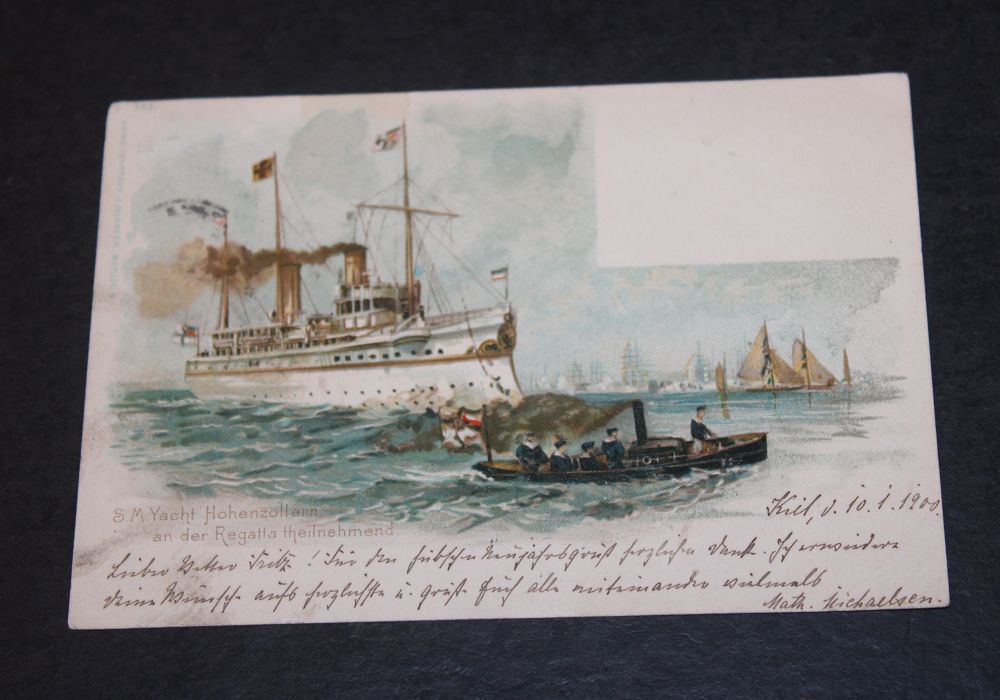 S.M.Yacht Hohenzollern
an der Regatta theilnehmend
Kiel, d. 10.1.1900.
Lieber Vetter Fritz! Für den hübschen Neujahrsgruß herzlichen Dank. Ich erwiedere
Deine Wünsche aufs herzlichste u. grüße Euch alle miteinander vielmals
Math. Michaelsen.